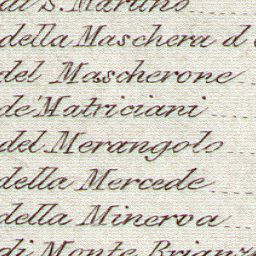 di S. Martino
della Maschera d
del Mascherone
de' Matriciani
del Merangolo
della Mercede
della Minerva
di Monte Brianz